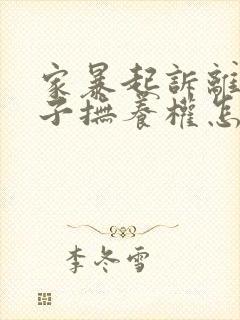 家暴起訴離
子撫養權怎
李冬雪